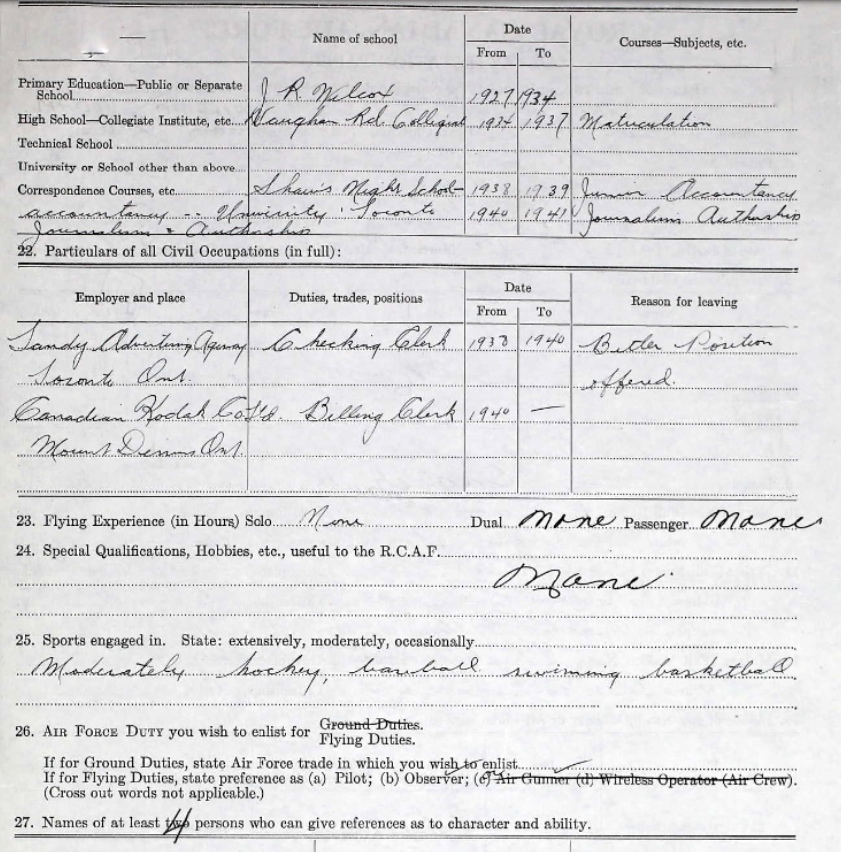 Name of school Date Courses—Subjects, etc.
From To
Primary Education—Public or Separate
School J R Wilcox 1927 1934
High School—Collegiate Institute, etc. Vaughan Rd. Collegiat 1934 1937 Matriculation
Technical School
University or School other than above
Correspondence Courses, etc. Shaw's Night School 1938 1939 Junior Accountancy
accountancy -- University Toronto 1940 1941 Journalism Authorship
Journalism & Authorship
22. Particulars of all Civil Occupations (in full):
Employer and place Duties, trades, positions Date Reason for leaving
From To
Advertising Agency Checking Clerk 1938 1940 Better Position
Toronto Ont. offered.
Canadian Kodak Co Ltd. Billing Clerk 1940 —
Mount Dennis Ont.
23. Flying Experience (in Hours) Solo None Dual None Passenger None
24. Special Qualifications, Hobbies, etc., useful to the R.C.A.F.
None
25. Sports engaged in. State: extensively, moderately, occasionally
Moderately hockey, baseball swimming basketball
26. AIR FORCE DUTY you wish to enlist for Ground Duties.
Flying Duties.
If for Ground Duties, state Air Force trade in which you wish to enlist
If for Flying Duties, state preference as (a) Pilot; (b) Observer; (c) Air Gunner (d) Wireless Operator (Air Crew).
(Cross out words not applicable.)
27. Names of at least two persons who can give references as to character and ability.